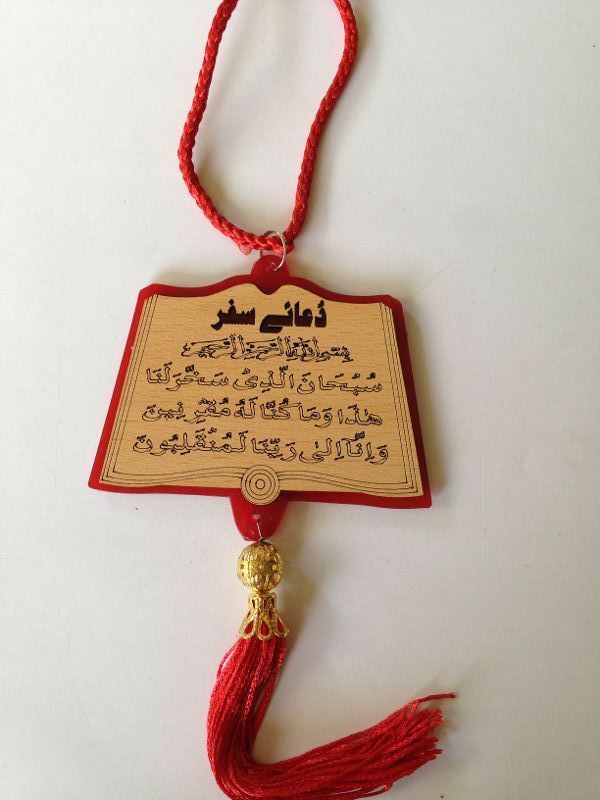 دُعائے سفر
بِسْمِ اللهِ الرَّحْمٰنِ الرَّحِيْمِ
سُبْحَانَ الَّذِىْ سَخَّرَلَنَا
هٰذَا وَمَا كُنَّا لَهُ مُقْرِنِيْنَ
وَاِنَّآ اِلىٰ رَبِّنَا لَمُنْقَلِبُوْنَ